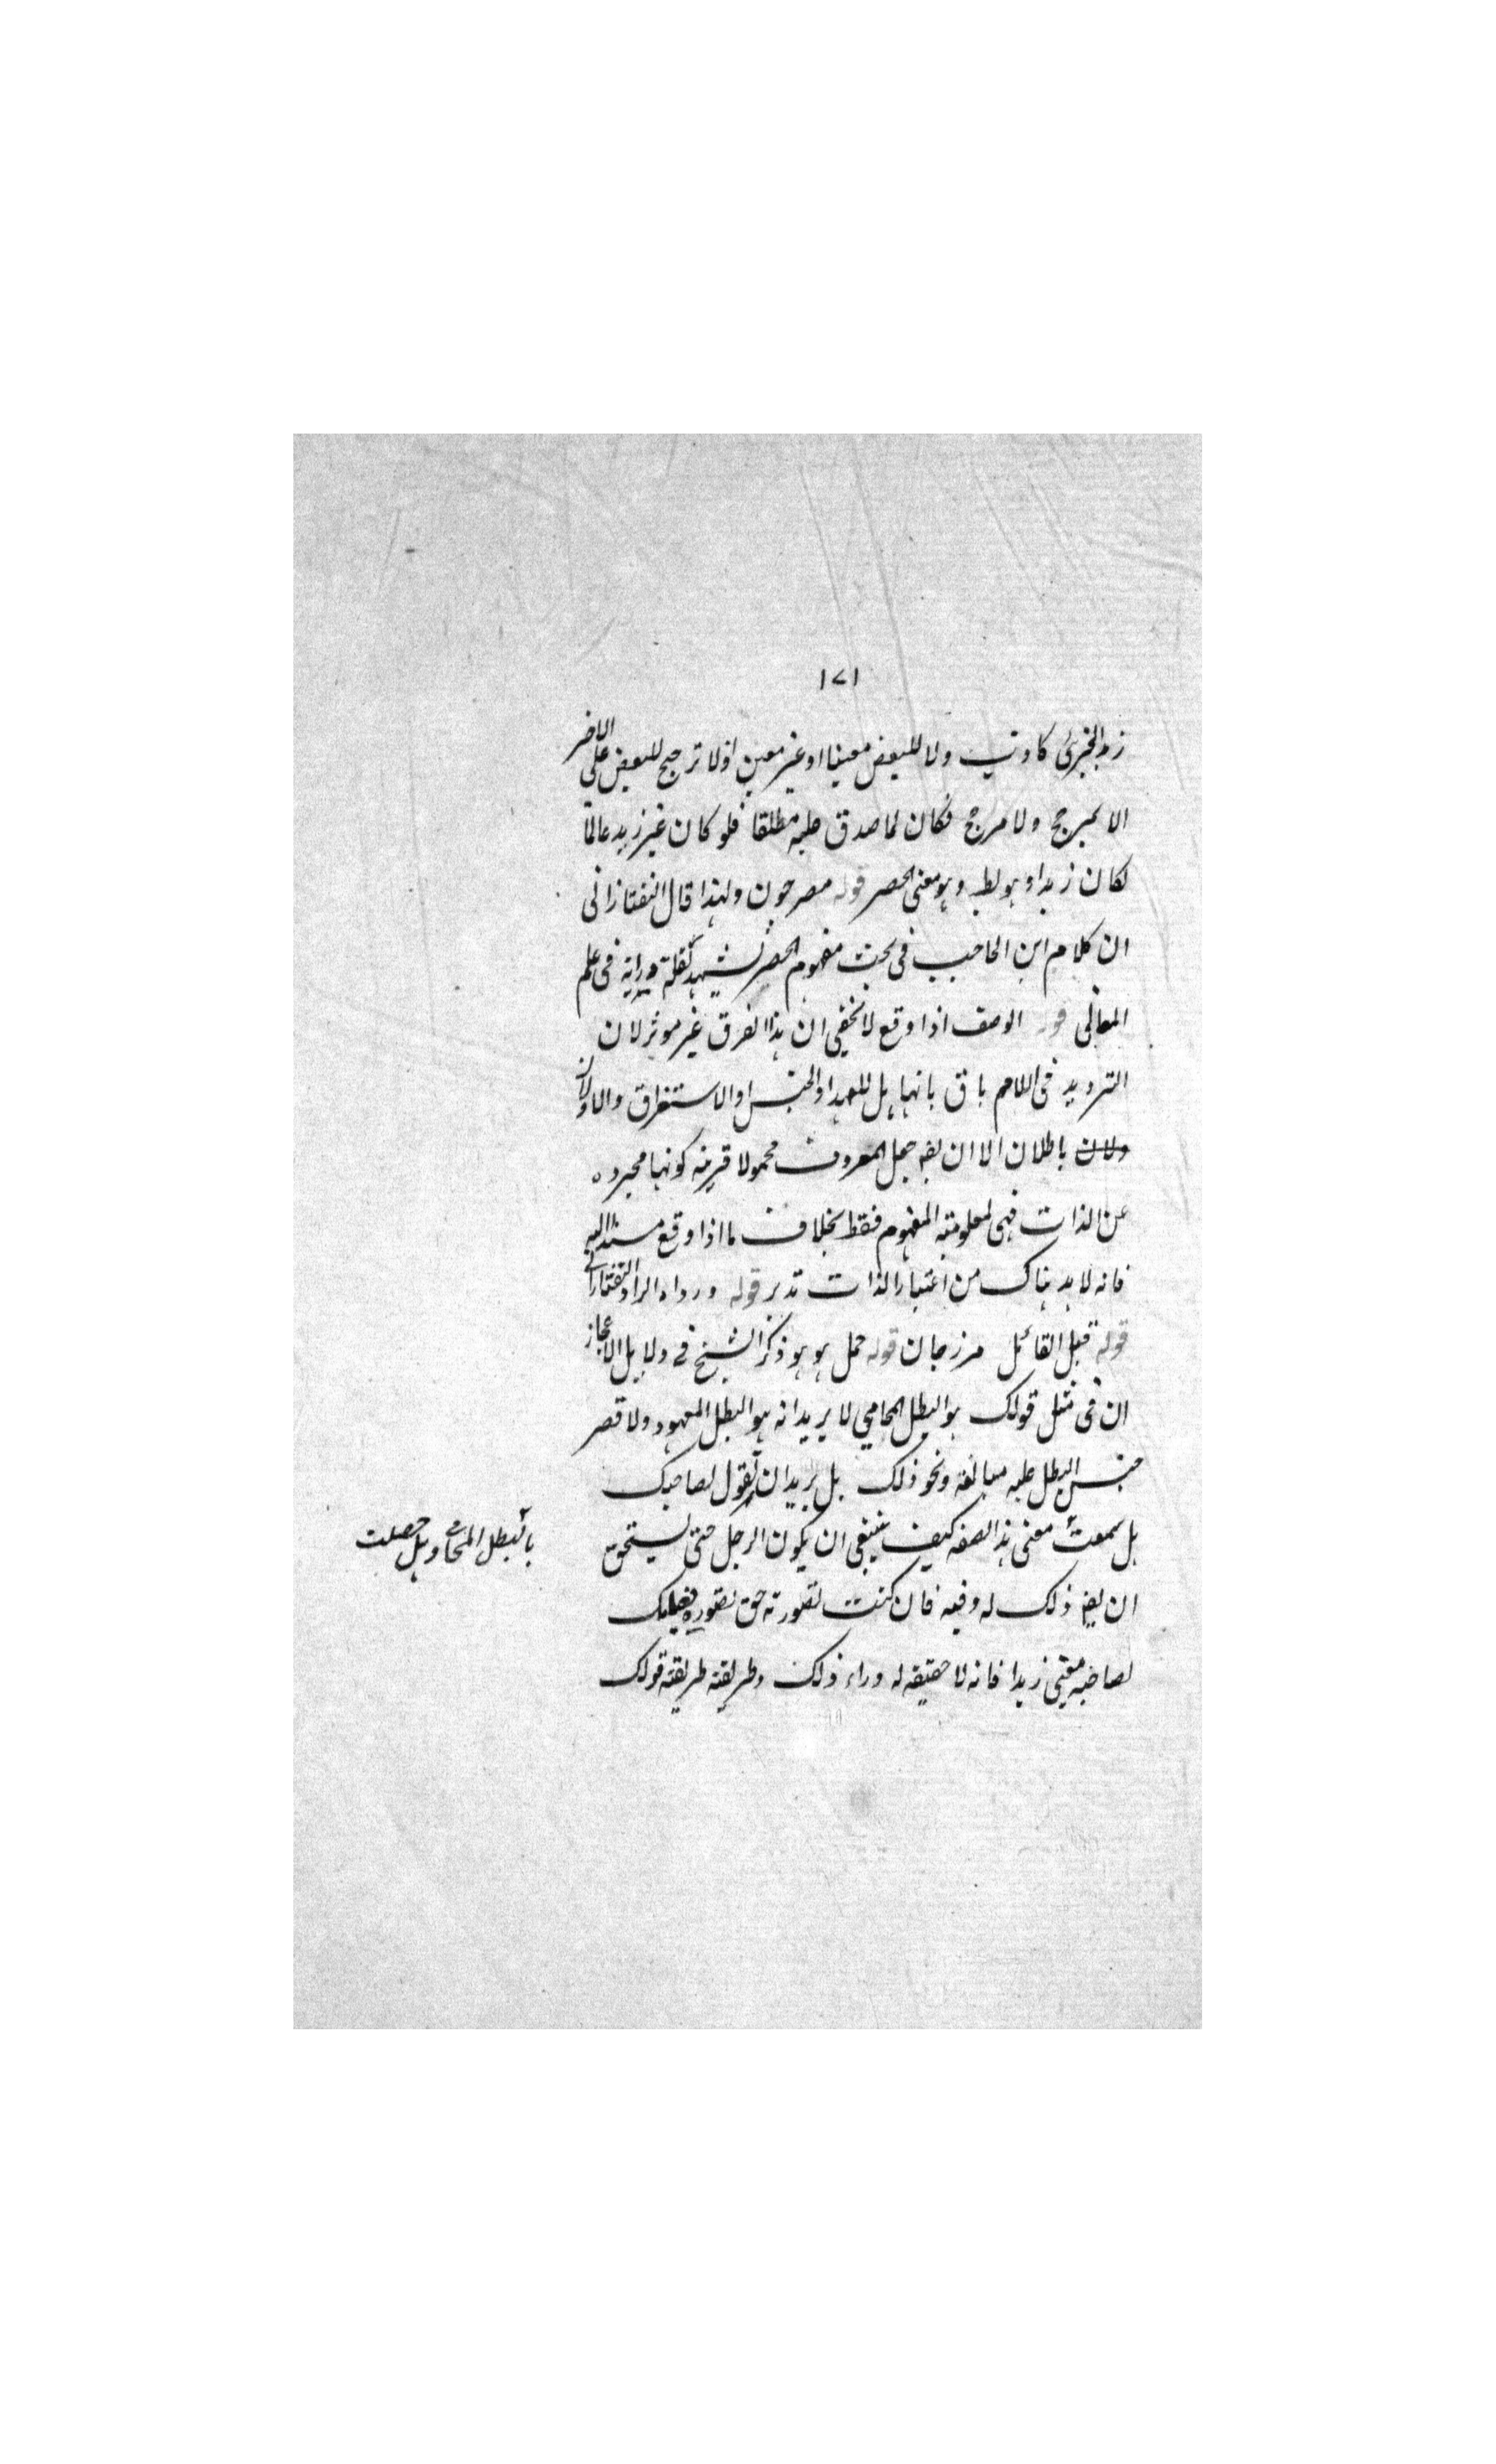 ١٧١
زيد الخبرى كاذب ولا للبعض معينا او غير معين اذ لا ترجيح للبعض على الاخر
الا بمرجح ولا مرجح فكان لما صدق عليه مطلقا فلو كان غير زيد عالما
لكان زيدا وهو بط وهو معنى الحصر قوله مصرحون ولهذا قال التفتازانى
ان كلام ابن الحاجب فى بحث مفهوم الحصر تشهد بقلة درايته فى علم
المعانى قوله الوصف اذا وقع لا يخفى ان هذا الفرق غير موثر لان
الترديد فى اللام باق بانها هل للعهد او الجنس او الاستغراق والاولان
ولان باطلان الا ان يق جعل المعروف محمولا قرينه كونها مجرده
عن الذات فهى لمعلومية المفهوم فقط بخلاف ما اذا وقع مسندا اليه
فانه لا بد هناك من اعتبار الذات تدبر قوله ورداه الراد التفتازانى
قوله قيل القائل مرزجان قوله حمل هو هو ذكر الشيخ فى دلايل الاعجاز
ان فى مثل قولك هو البطل المحامي لا يريد انه هو البطل المعهود ولا قصر
جنس البطل عليه مبالغة ونحو ذلك بل يريد ان يقول لصاحبك
هل سمعت معنى هذا الصفه كيف ينبغى ان يكون الرجل حتى يستحق
بالبطل المحامى وهل حصلت
ان يق ذلك له وفيه فان كنت تصورته حق تصوره فعليك
لصاحبه معنى زيدا فانه لا حقيقه له وراء ذلك وطريقته طريقة قولك